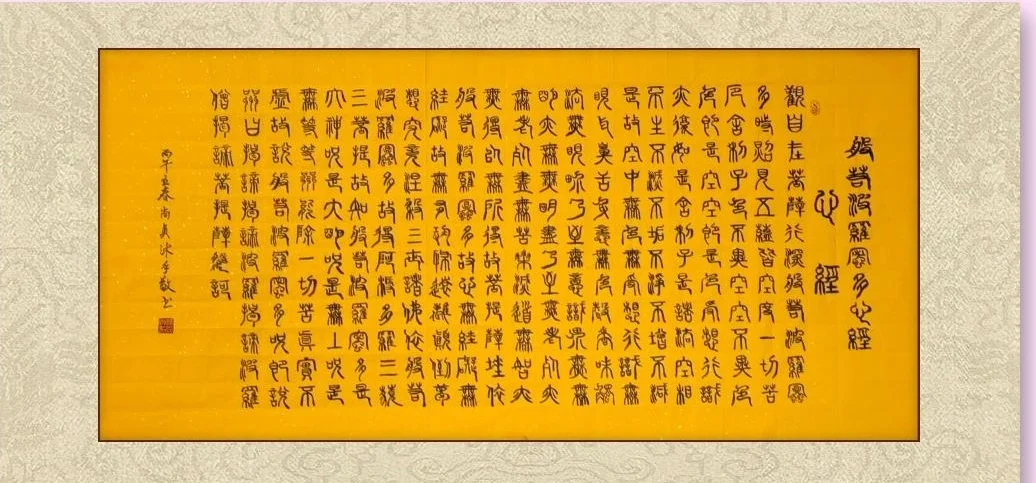 般若波羅蜜多心經
心經
觀自在菩薩行深般若波羅蜜
多時照見五蘊皆空度一切苦
厄舍利子色不異空空不異色
色即是空空即是色受想行識
亦復如是舍利子是諸法空相
不生不滅不垢不淨不增不減
是故空中無色無受想行識無
眼耳鼻舌身意無色聲香味觸
法無眼界乃至無意識界無無
明亦無無明盡乃至無老死亦
無老死盡無苦集滅道無智亦
無得以無所得故菩提薩埵依
般若波羅蜜多故心無罣礙無
罣礙故無有恐怖遠離顛倒夢
想究竟涅槃三世諸佛依般若
波羅蜜多故得阿耨多羅三藐
三菩提故知般若波羅蜜多是
大神咒是大明咒是無上咒是
無等等咒能除一切苦真實不
虛故說般若波羅蜜多咒即說
咒曰揭諦揭諦波羅揭諦波羅
僧揭諦菩提薩婆訶
丙午孟春尚真沐手敬书